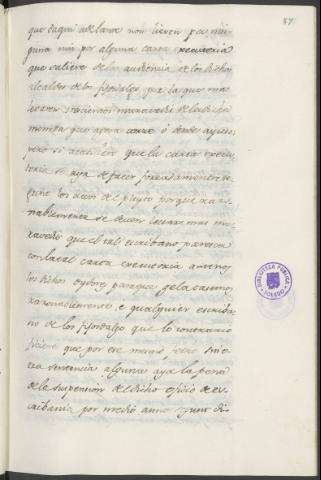 87
que daqui adelante non lieven por nin-
guna nin por alguna carta executoria
que saliere de la audiencia de los dichos
alcaldes de los fijosdalgo, por la que mas
levaren trecientos maravedis de la dicha
moneda que agora corre ó dende ayuso;
pero si acaesciere que la carta execu-
toria se aya de facer forzadamente de
fecho los autos de pleyto porque razo-
nablemente se deven levar mas ma-
ravedis que el tal escribano, paresca
con la tal carta executoria ante
los dichos oydores para que ge la tasen
razonablemente, e qualquier escriba-
no de los fijosdalgo que lo contrario
ficiere que por ese mesmo fecho sin o-
tra sentencia alguna aya la pena
de la suspension del dicho oficio de es-
cribania por medio anno segunt di-
BIBLIOTECA PÚBLICA
TOLEDO